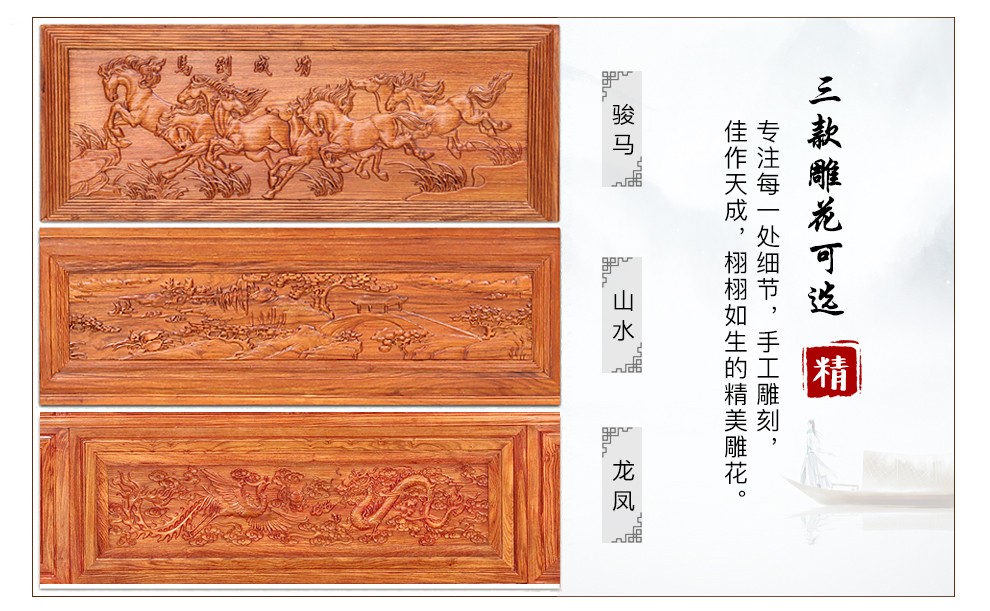 三款雕花可选
精
专注每一处细节，手工雕刻，
佳作天成，栩栩如生的精美雕花。
馬到成功
骏马
山水
龙凤